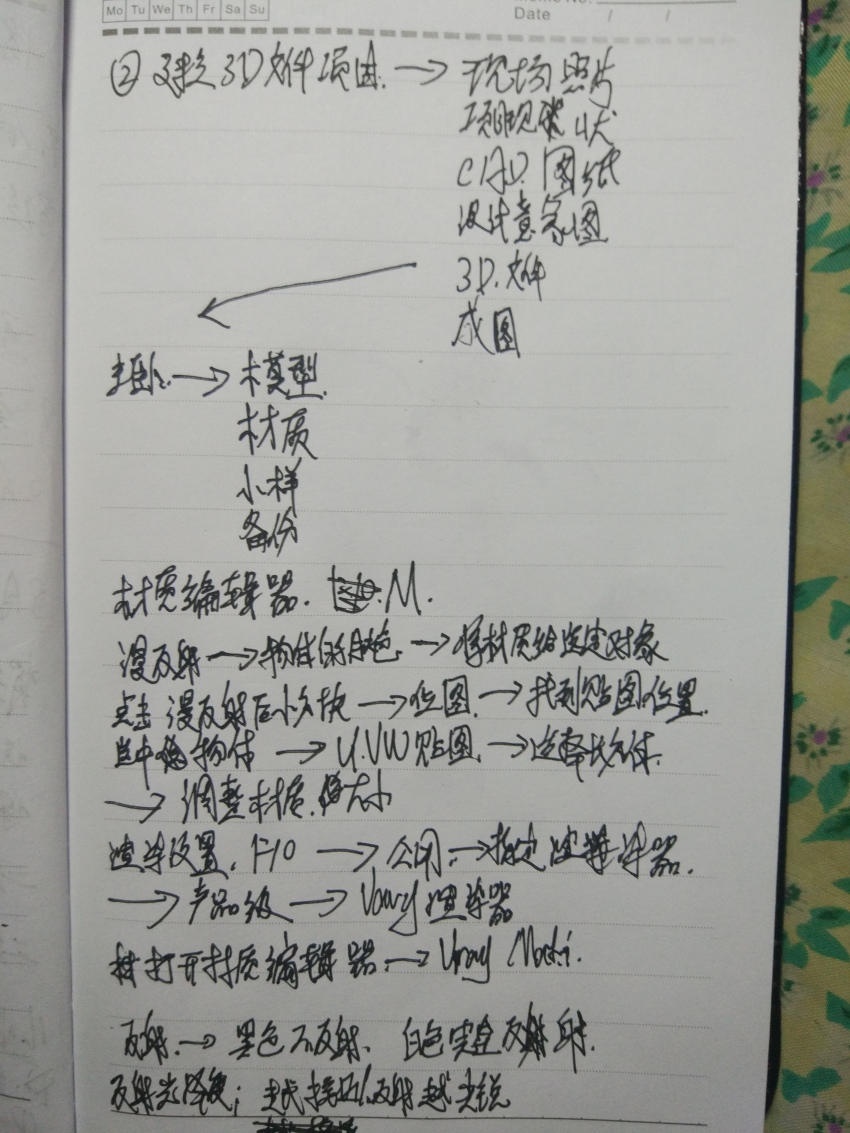 Mo Tu We Th Fr Sa Su
Memo No.
Date / /
② 建立3D文件项目. → 现场照片
项目现状
CAD. 图纸
设计意象图
3D.文件
成图
主卧. → 模型.
材质
小样
备份
材质编辑器. M.
漫反射 → 物体的颜色. → 将材质给选定对象
点击漫反射后小方块 → 位图. → 找到贴图位置.
选中物体 → U.VW贴图. → 选择长方体.
→ 调整材质. 大小
渲染设置. F10 → 公用. → 指定渲染器.
→ 产品级 → Vray渲染器
打开材质编辑器. → Vray Mtl.
反射. → 黑色不反射、白色完全反射.
反射光泽度; 越接近1.反射越尖锐